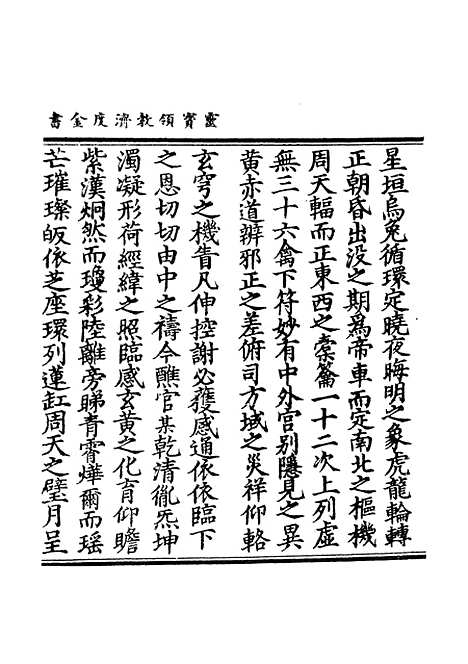 靈寶領教濟度金書
星垣烏兔循環定曉夜晦明之象虎龍輪轉
正朝昏出没之期爲帝車而定南北之樞機
周天輻而正東西之橐籥一十二次上列虛
無三十六禽下符妙有中外官别隱見之異
黄赤道辨邪正之差俯司方域之災祥仰輅
玄穹之機眚凡伸控謝必獲感通依依臨下
之恩切切由中之禱今醮官某乾清胤炁坤
濁凝形荷經緯之照臨感玄黄之化育仰瞻
紫漢炯然而瓊彩陸離旁睇青霄燁爾而瑶
芒璀璨皈依芝座環列蓮缸周天之璧月呈